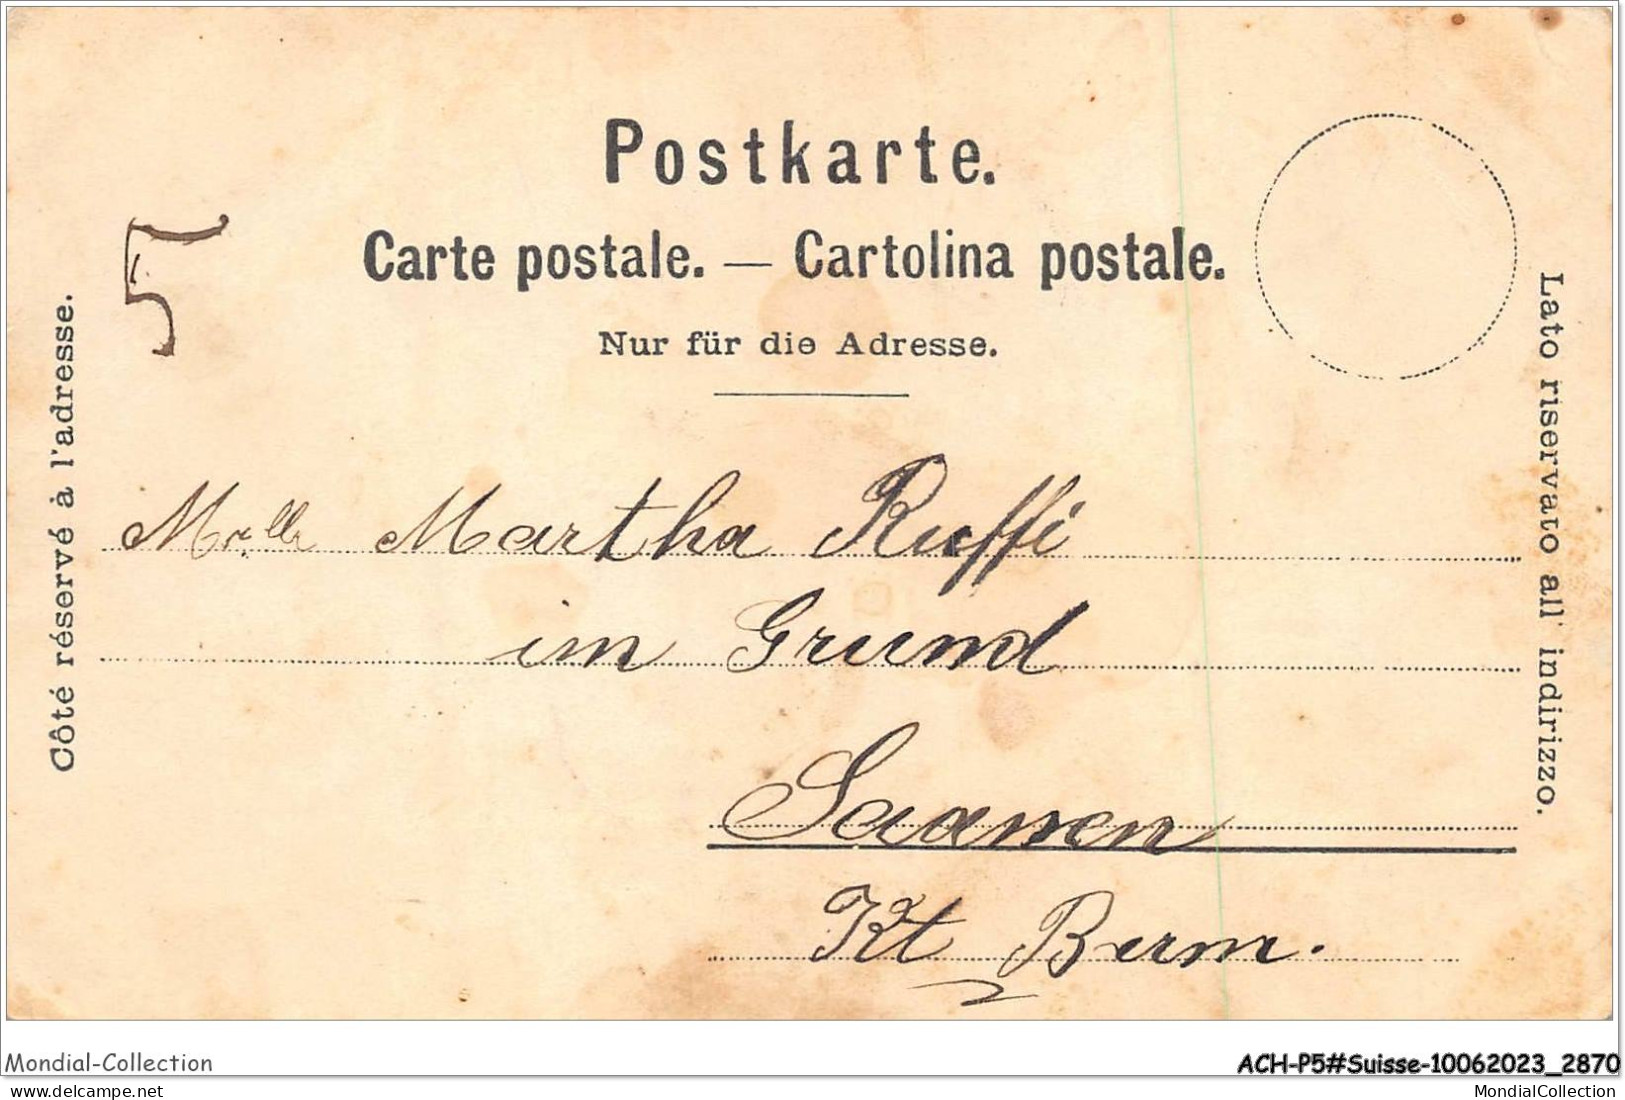 Postkarte.
Carte postale. — Cartolina postale.
Nur für die Adresse.
Côté réservé à l'adresse.
5
Lato riservato all' indirizzo.
Melle Martha Ruffi
im Grund
Saanen
Kt Bern.
Mondial-Collection
ACH-P5#Suisse-10062023_2870
MondialCollection
www.delcampe.net